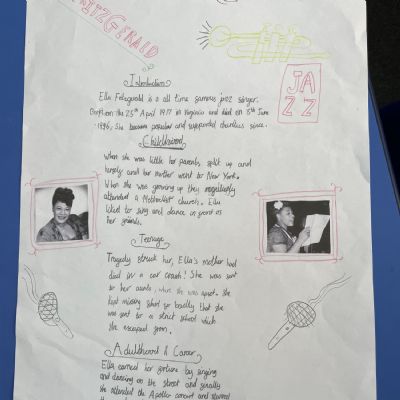 FITZGERALD
JA
ZZ
Introduction
Ella Fitzgerald is a all time famous jazz singer.
Born on the 25th April 1917 in Virginia and died on 15th June
1996, She became popular and supported charities since.
Childhood
When she was little her parents split up and
and her mother went to New York.
When she was growing up they regularly
attended a Methodist church. Ella
liked to sing and dance in front of
her friends.
Teenage
Tragedy struck her, Ella's mother had
died in a car crash! She was sent
to her aunts, where she was upset. She
kept missing school so badly that she
was sent to a strict school which
she escaped from.
Adulthood & Career
Ella earned her fortune by singing
and dancing on the street and finally
she attended the Apollo concert and